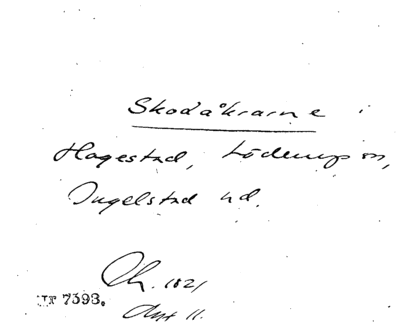 Skodåkrarne i
Hagestad, Löderup sn,
Ingelstad hd.
Ch. 1821
Akt 11.
LUF 7393.